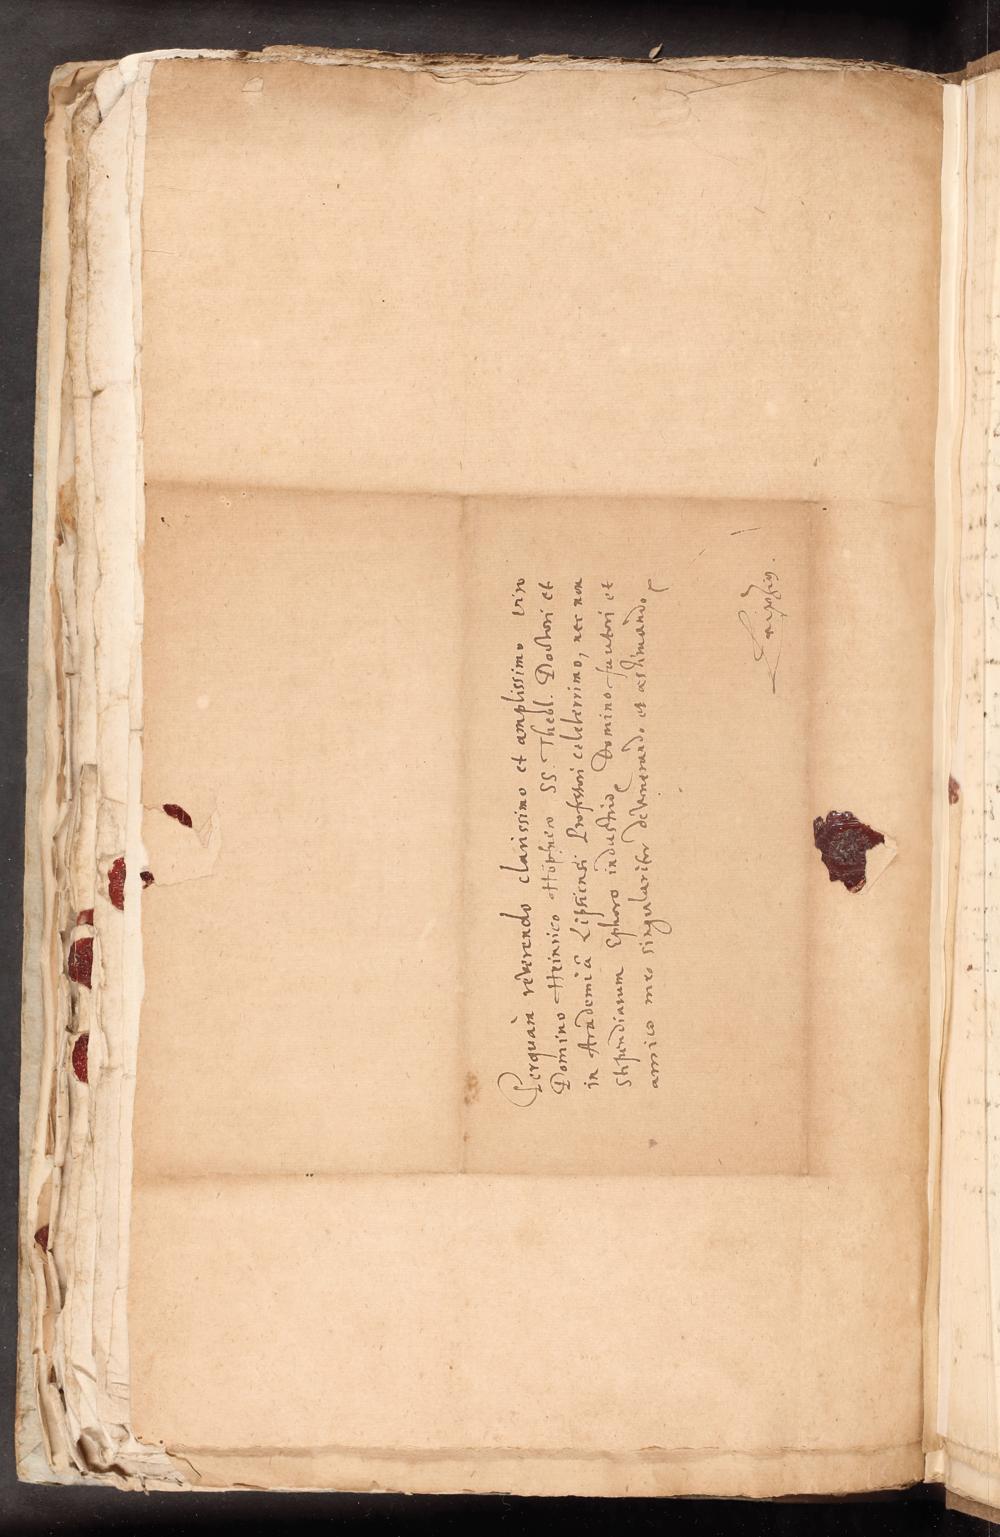 Perquàm reverendo clarissimo et amplissimo viro
Domino Heinrico Höpfnero SS. Theol. Doctori et
in Academiâ Lipsiensi Professori celeberrimo, nec non
Stipendiarum Ephoro industrio, Domino fautori et
amico meo singulariter devenerando et æstimando
Leipzig.